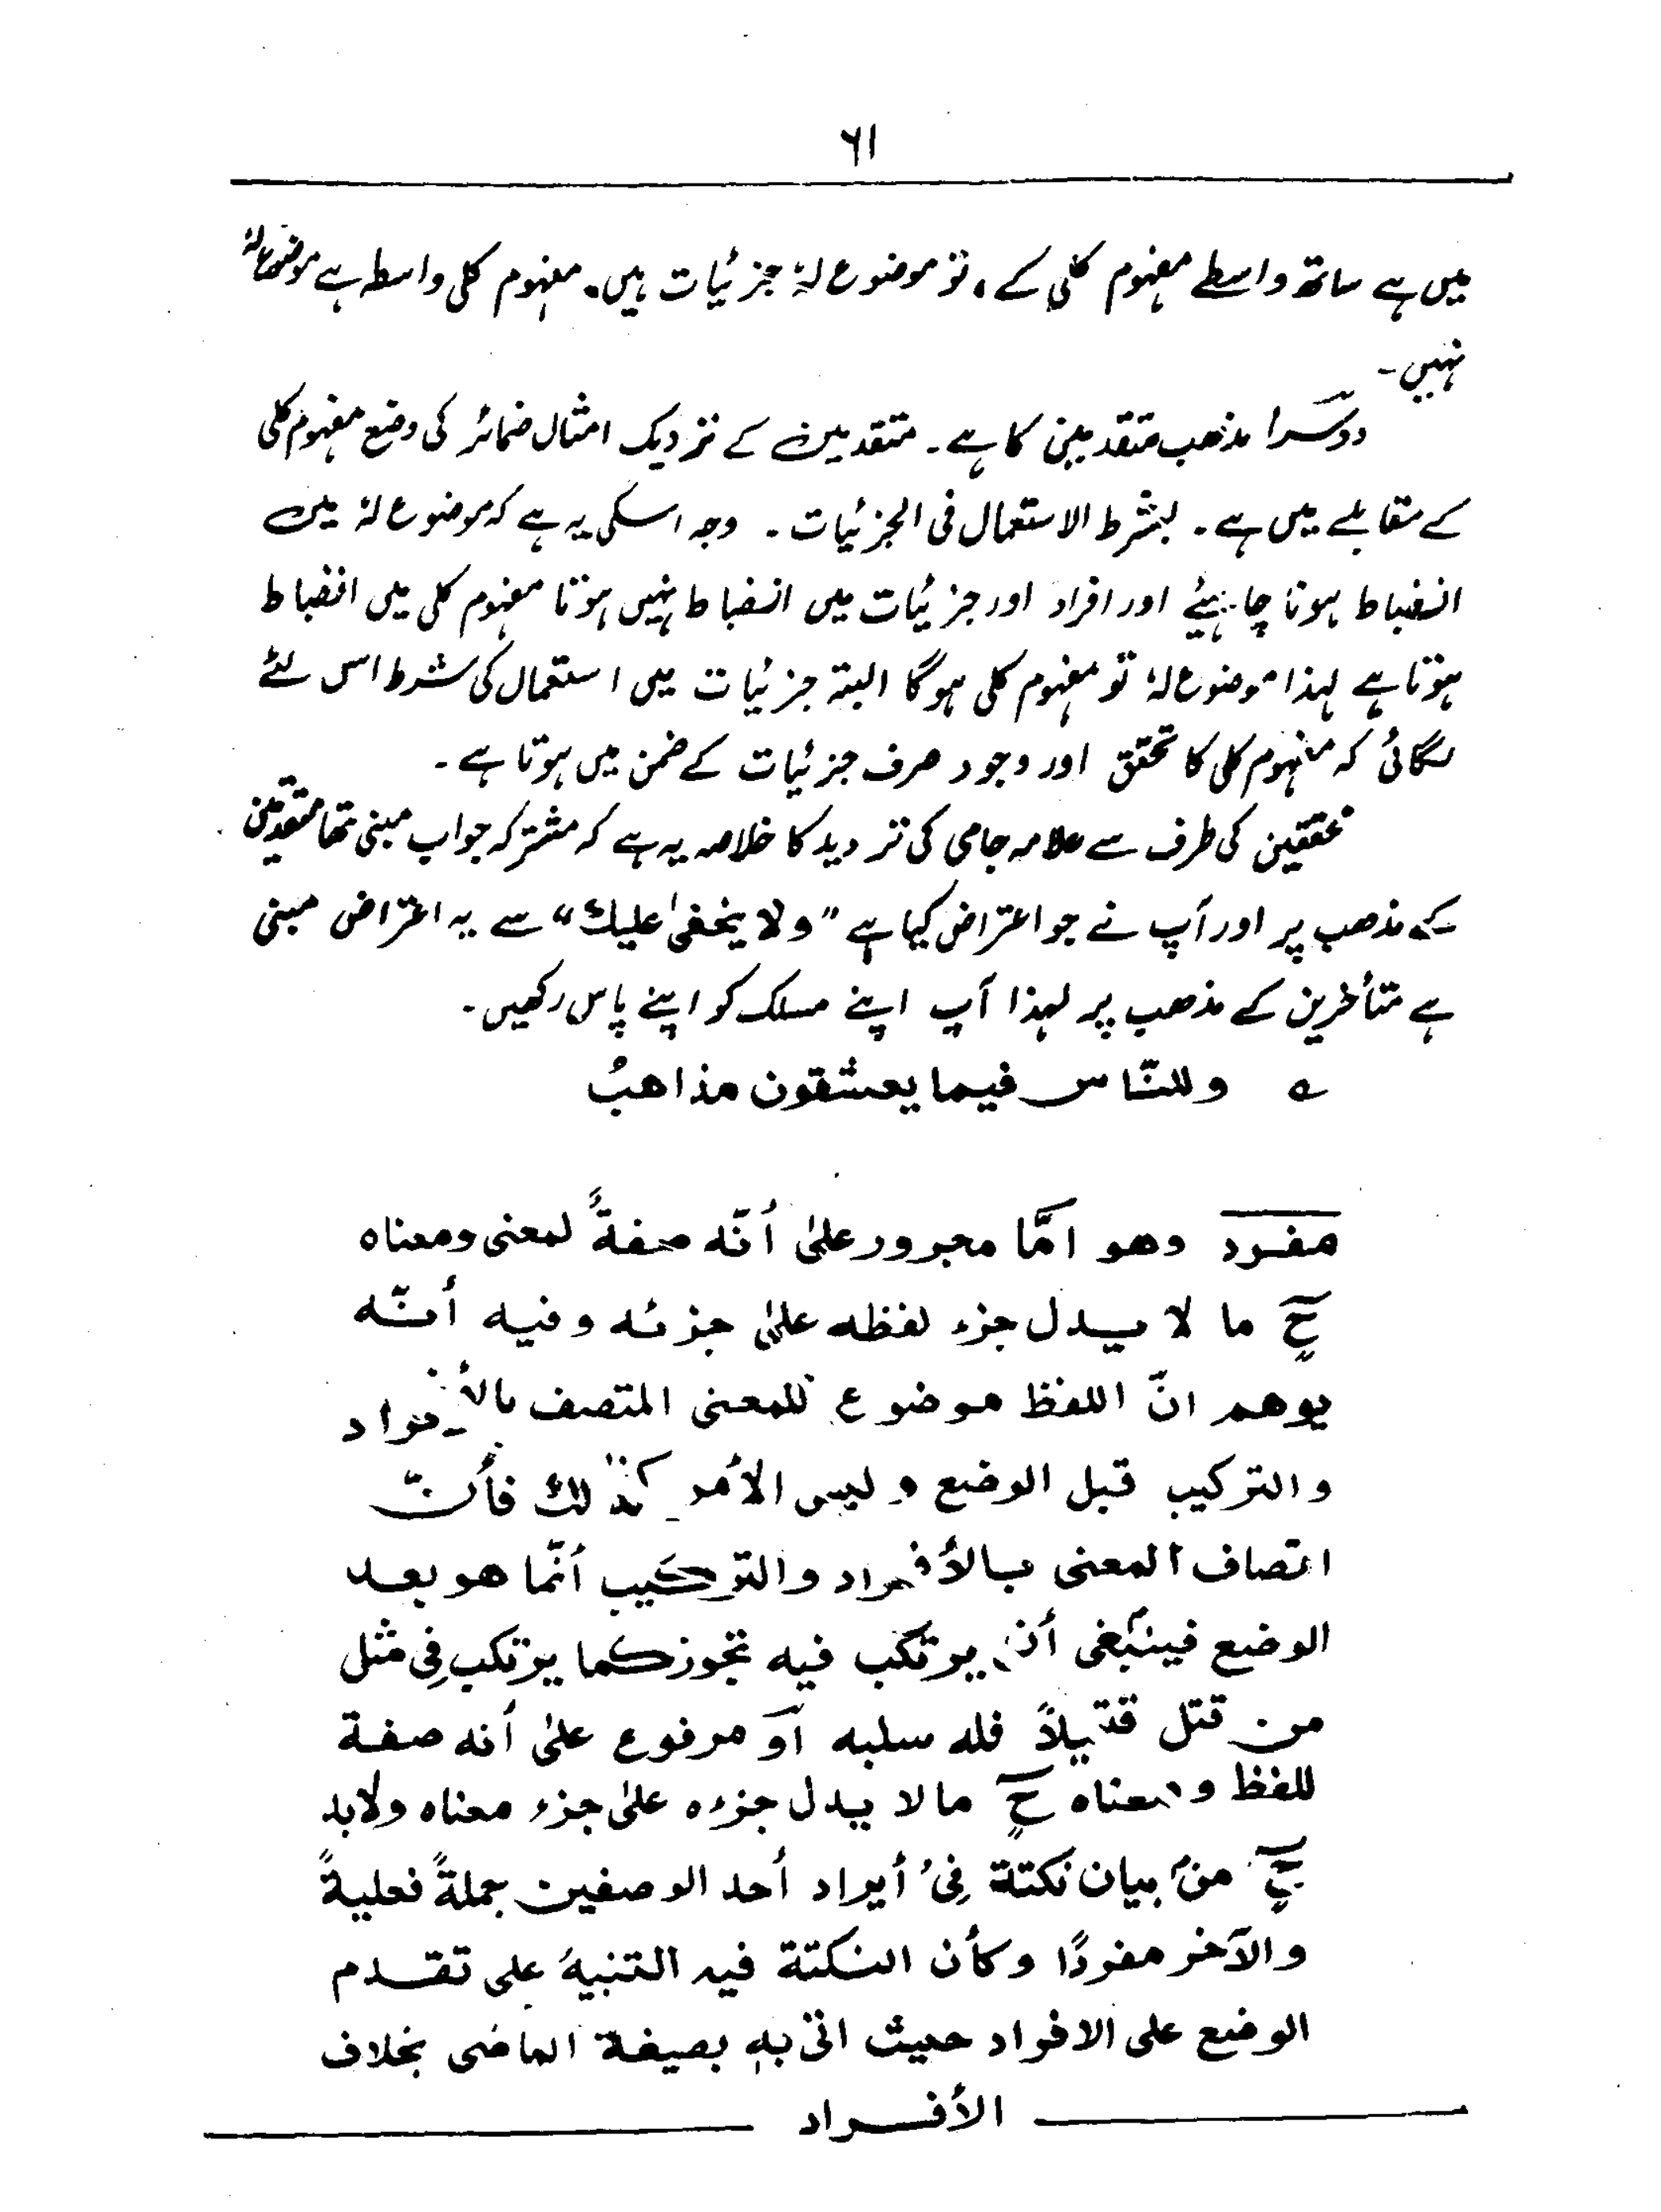 ٦١
میں ہے ساتھ واسطے مفہوم کلی کے، تو موضوع لہٗ جزئیات ہیں۔ مفہوم کلی واسطہ ہے موضوع لہٗ
نہیں۔
دوسرا مذھب متقدمین کا ہے۔ متقدمین کے نزدیک امثال ضمائر کی وضع مفہوم کلی
کے مقابلے میں ہے۔ بشرط الاستعمال فی الجزئیات۔ وجہ اسکی یہ ہے کہ موضوع لہٗ میں
انضباط ہونا چاہیئے اور افراد اور جزئیات میں انضباط نہیں ہوتا مفہوم کلی میں انضباط
ہوتا ہے لہذا موضوع لہٗ تو مفہوم کلی ہوگا البتہ جزئیات میں استعمال کی شرط اس لئے
لگائی کہ مفہوم کلی کا تحقق اور وجود صرف جزئیات کے ضمن میں ہوتا ہے۔
محققین کی طرف سے علامہ جامی کی تردید کا خلاصہ یہ ہے کہ مشترکہ جواب مبنی تھا متقدمین
کے مذھب پر اور آپ نے جو اعتراض کیا ہے "ولا یخفیٰ علیك" سے یہ اعتراض مبنی
ہے متأخرین کے مذھب پر لہذا آپ اپنے مسلک کو اپنے پاس رکھیں۔
؎ وللنّاس فیما یعشقون مذاھبُ
مفرد وهو امّا مجرور علیٰ أنّه صفةً لمعنی ومعناه
حٍ ما لا يدل جزء لفظه علیٰ جزئه وفيه أنّه
يوهم انّ اللفظ موضوع للمعنی المتصف بالأفراد
والتركيب قبل الوضع وليس الأمر كذلك فأنّ
اتصاف المعنی بالأفراد والتركيب أنّما هو بعد
الوضع فينبغی أن يرتكب فيه تجوز كما يرتكب فِی مثل
من قتل قتيلاً فله سلبه أو مرفوع علیٰ أنه صفة
للفظ ومعناه حٍ مالا يدل جزءه علیٰ جزء معناه ولابد
حٍ من بيان نكتة فِی أيراد أحد الوصفين جملةً فعليةً
والآخر مفردًا وكأن النكتة فيه التنبيهُ علی تقدم
الوضع علی الافراد حيث اتیٰ بهٖ بصيغة الماضی بخلاف
الأفراد